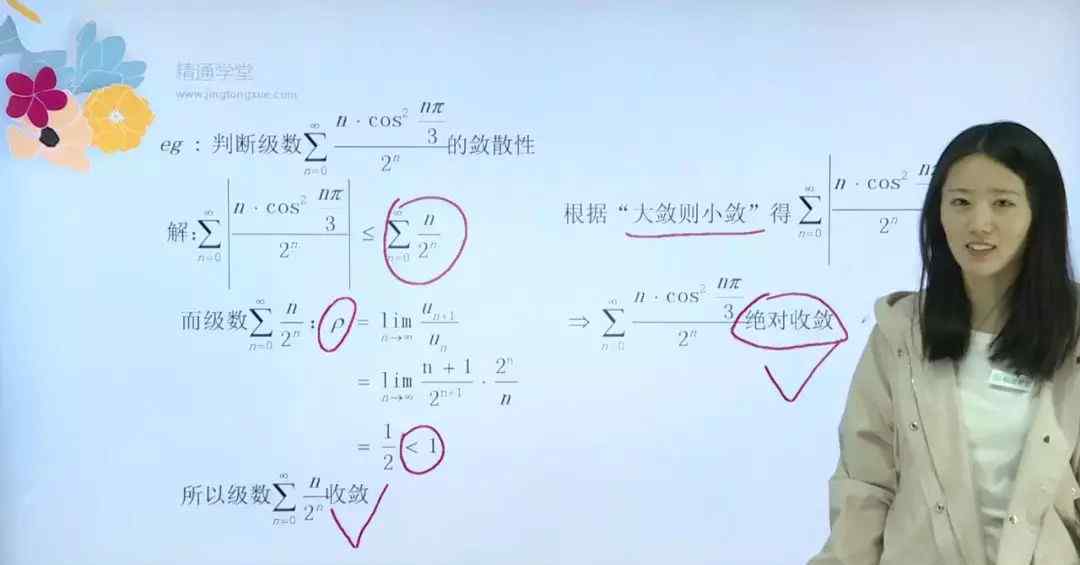 精通学堂
www.jingtongxue.com
eg : 判断级数 ∑_{n=0}^{∞} \frac{n · cos² \frac{nπ}{3}}{2ⁿ} 的敛散性
解: ∑_{n=0}^{∞} |\frac{n · cos² \frac{nπ}{3}}{2ⁿ}| ≤ ∑_{n=0}^{∞} \frac{n}{2ⁿ}
而级数 ∑_{n=0}^{∞} \frac{n}{2ⁿ} : ρ = lim_{n→∞} \frac{u_{n+1}}{u_n}
= lim_{n→∞} \frac{n + 1}{2^{n+1}} · \frac{2ⁿ}{n}
= \frac{1}{2} < 1
所以级数 ∑_{n=0}^{∞} \frac{n}{2ⁿ} 收敛
根据“大敛则小敛”得 ∑_{n=0}^{∞} |\frac{n · cos² \frac{n}{}}{2ⁿ}
⇒ ∑_{n=0}^{∞} \frac{n · cos² \frac{nπ}{3}}{2ⁿ} 绝对收敛